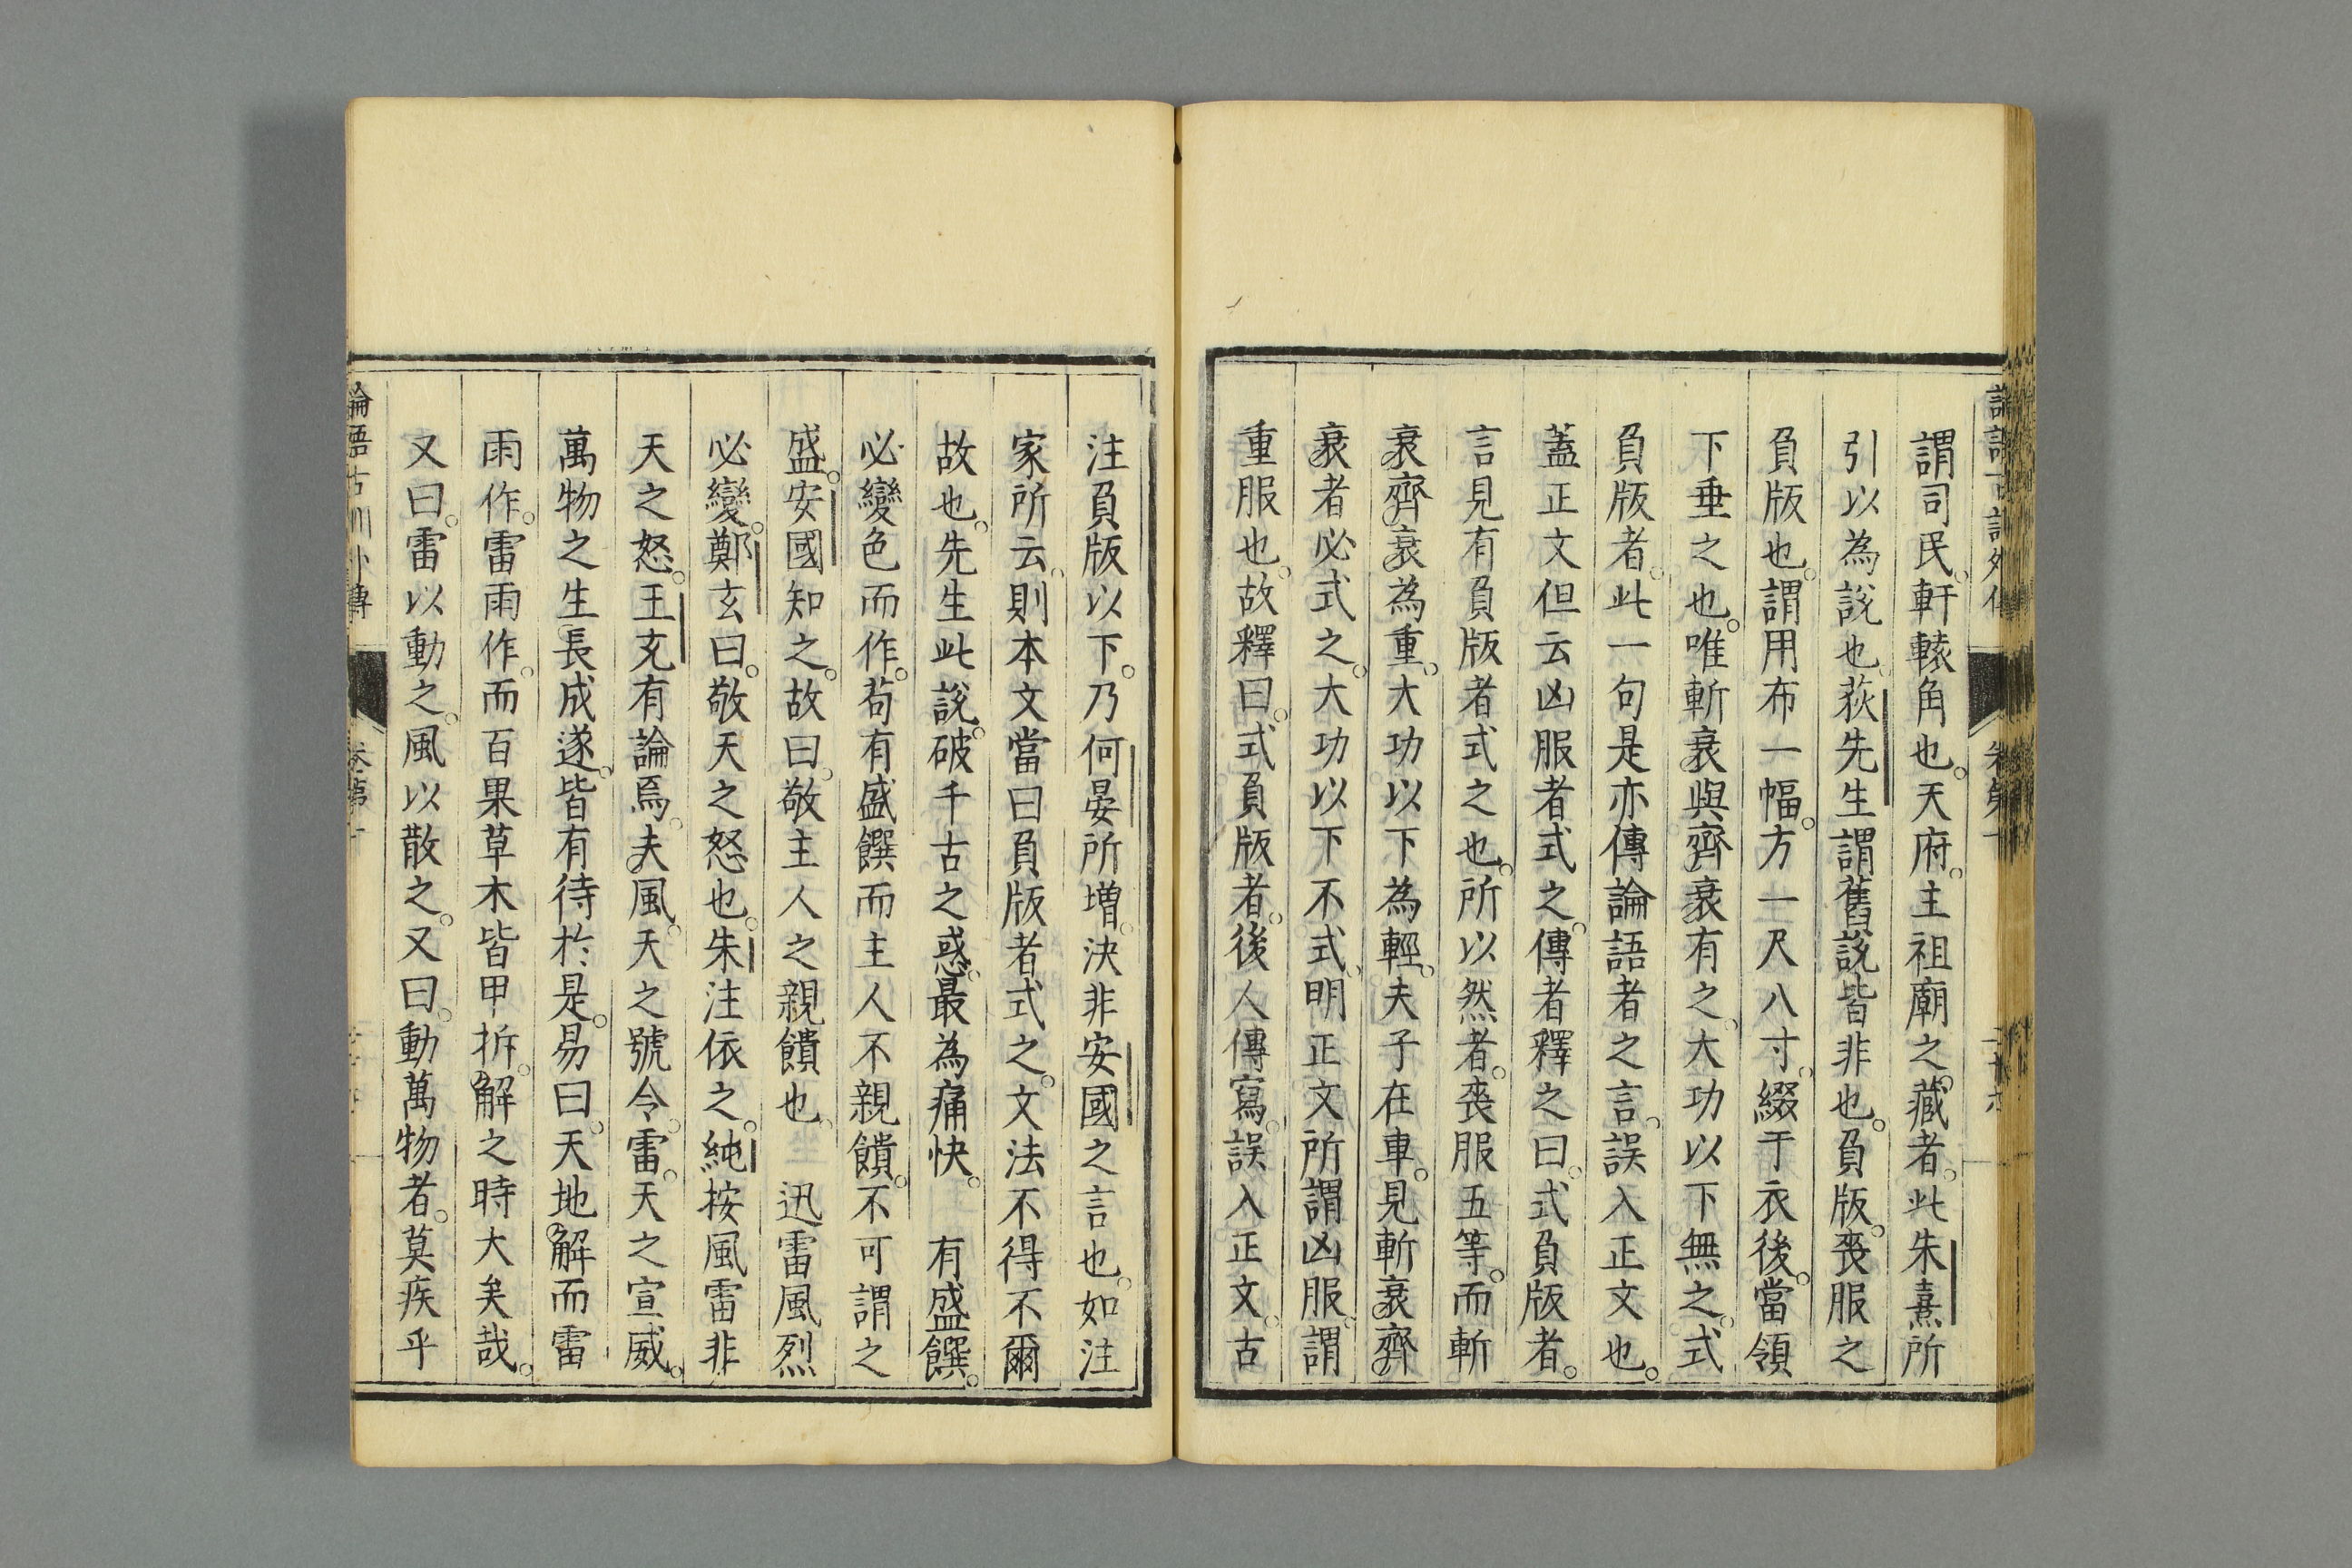 謂司民。軒轅角也。天府。主祖廟之藏者。此朱熹所
引以為說也。荻先生謂舊說皆非也。負版。喪服之
負版也。謂用布一幅。方一尺八寸。綴于衣後。當領
下垂之也。唯斬衰與齊衰有之。大功以下無之。式
負版者。此一句是亦傳論語者之言。誤入正文也。
蓋正文但云凶服者式之。傳者釋之曰。式負版者。
言見有負版者式之也。所以然者。喪服五等。而斬
衰齊衰為重。大功以下為輕。夫子在車。見斬衰齊
衰者必式之。大功以下不式。明正文所謂凶服。謂
重服也。故釋曰。式負版者。後人傳寫。誤入正文。古
注負版以下。乃何晏所增。決非安國之言也。如注
家所云。則本文當曰負版者式之。文法不得不爾
故也。先生此說。破千古之惑。最為痛快。　有盛饌。
必變色而作。苟有盛饌而主人不親饋。不可謂之
盛。安國知之。故曰。敬主人之親饋也。　迅雷風烈
必變。鄭玄曰。敬天之怒也。朱注依之。純按風雷非
天之怒。王充有論焉。夫風。天之號令。雷。天之宣威。
萬物之生長成遂。皆有待於是。易曰。天地解而雷
雨作。雷雨作。而百果草木皆甲拆。解之時大矣哉。
又曰。雷以動之。風以散之。又曰。動萬物者。莫疾乎
論語古訓外傳 卷第十